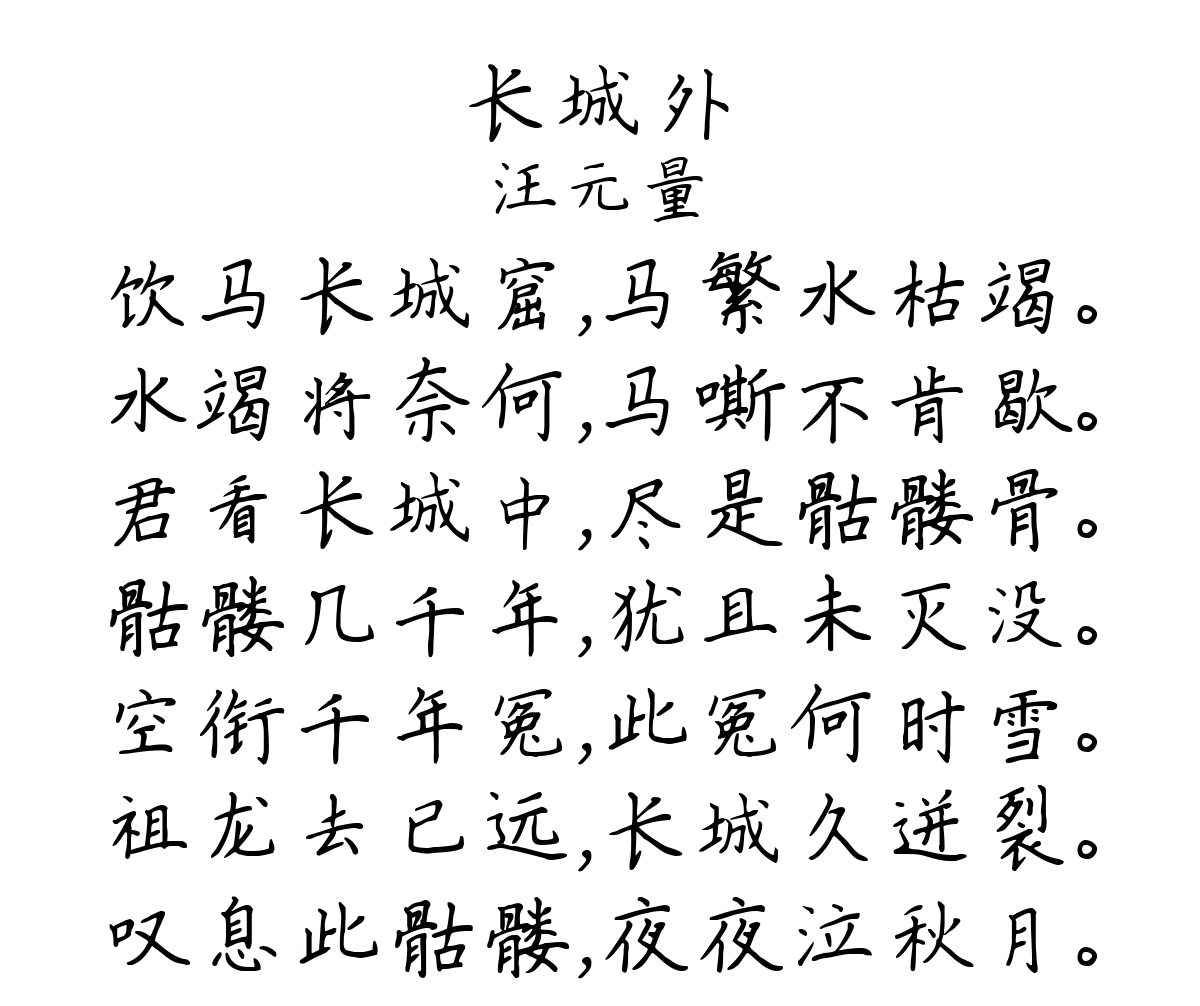 长城外
汪元量
饮马长城窟,马繁水枯竭。
水竭将奈何,马嘶不肯歇。
君看长城中,尽是骷髅骨。
骷髅几千年,犹且未灭没。
空衔千年冤,此冤何时雪。
祖龙去已远,长城久迸裂。
叹息此骷髅,夜夜泣秋月。